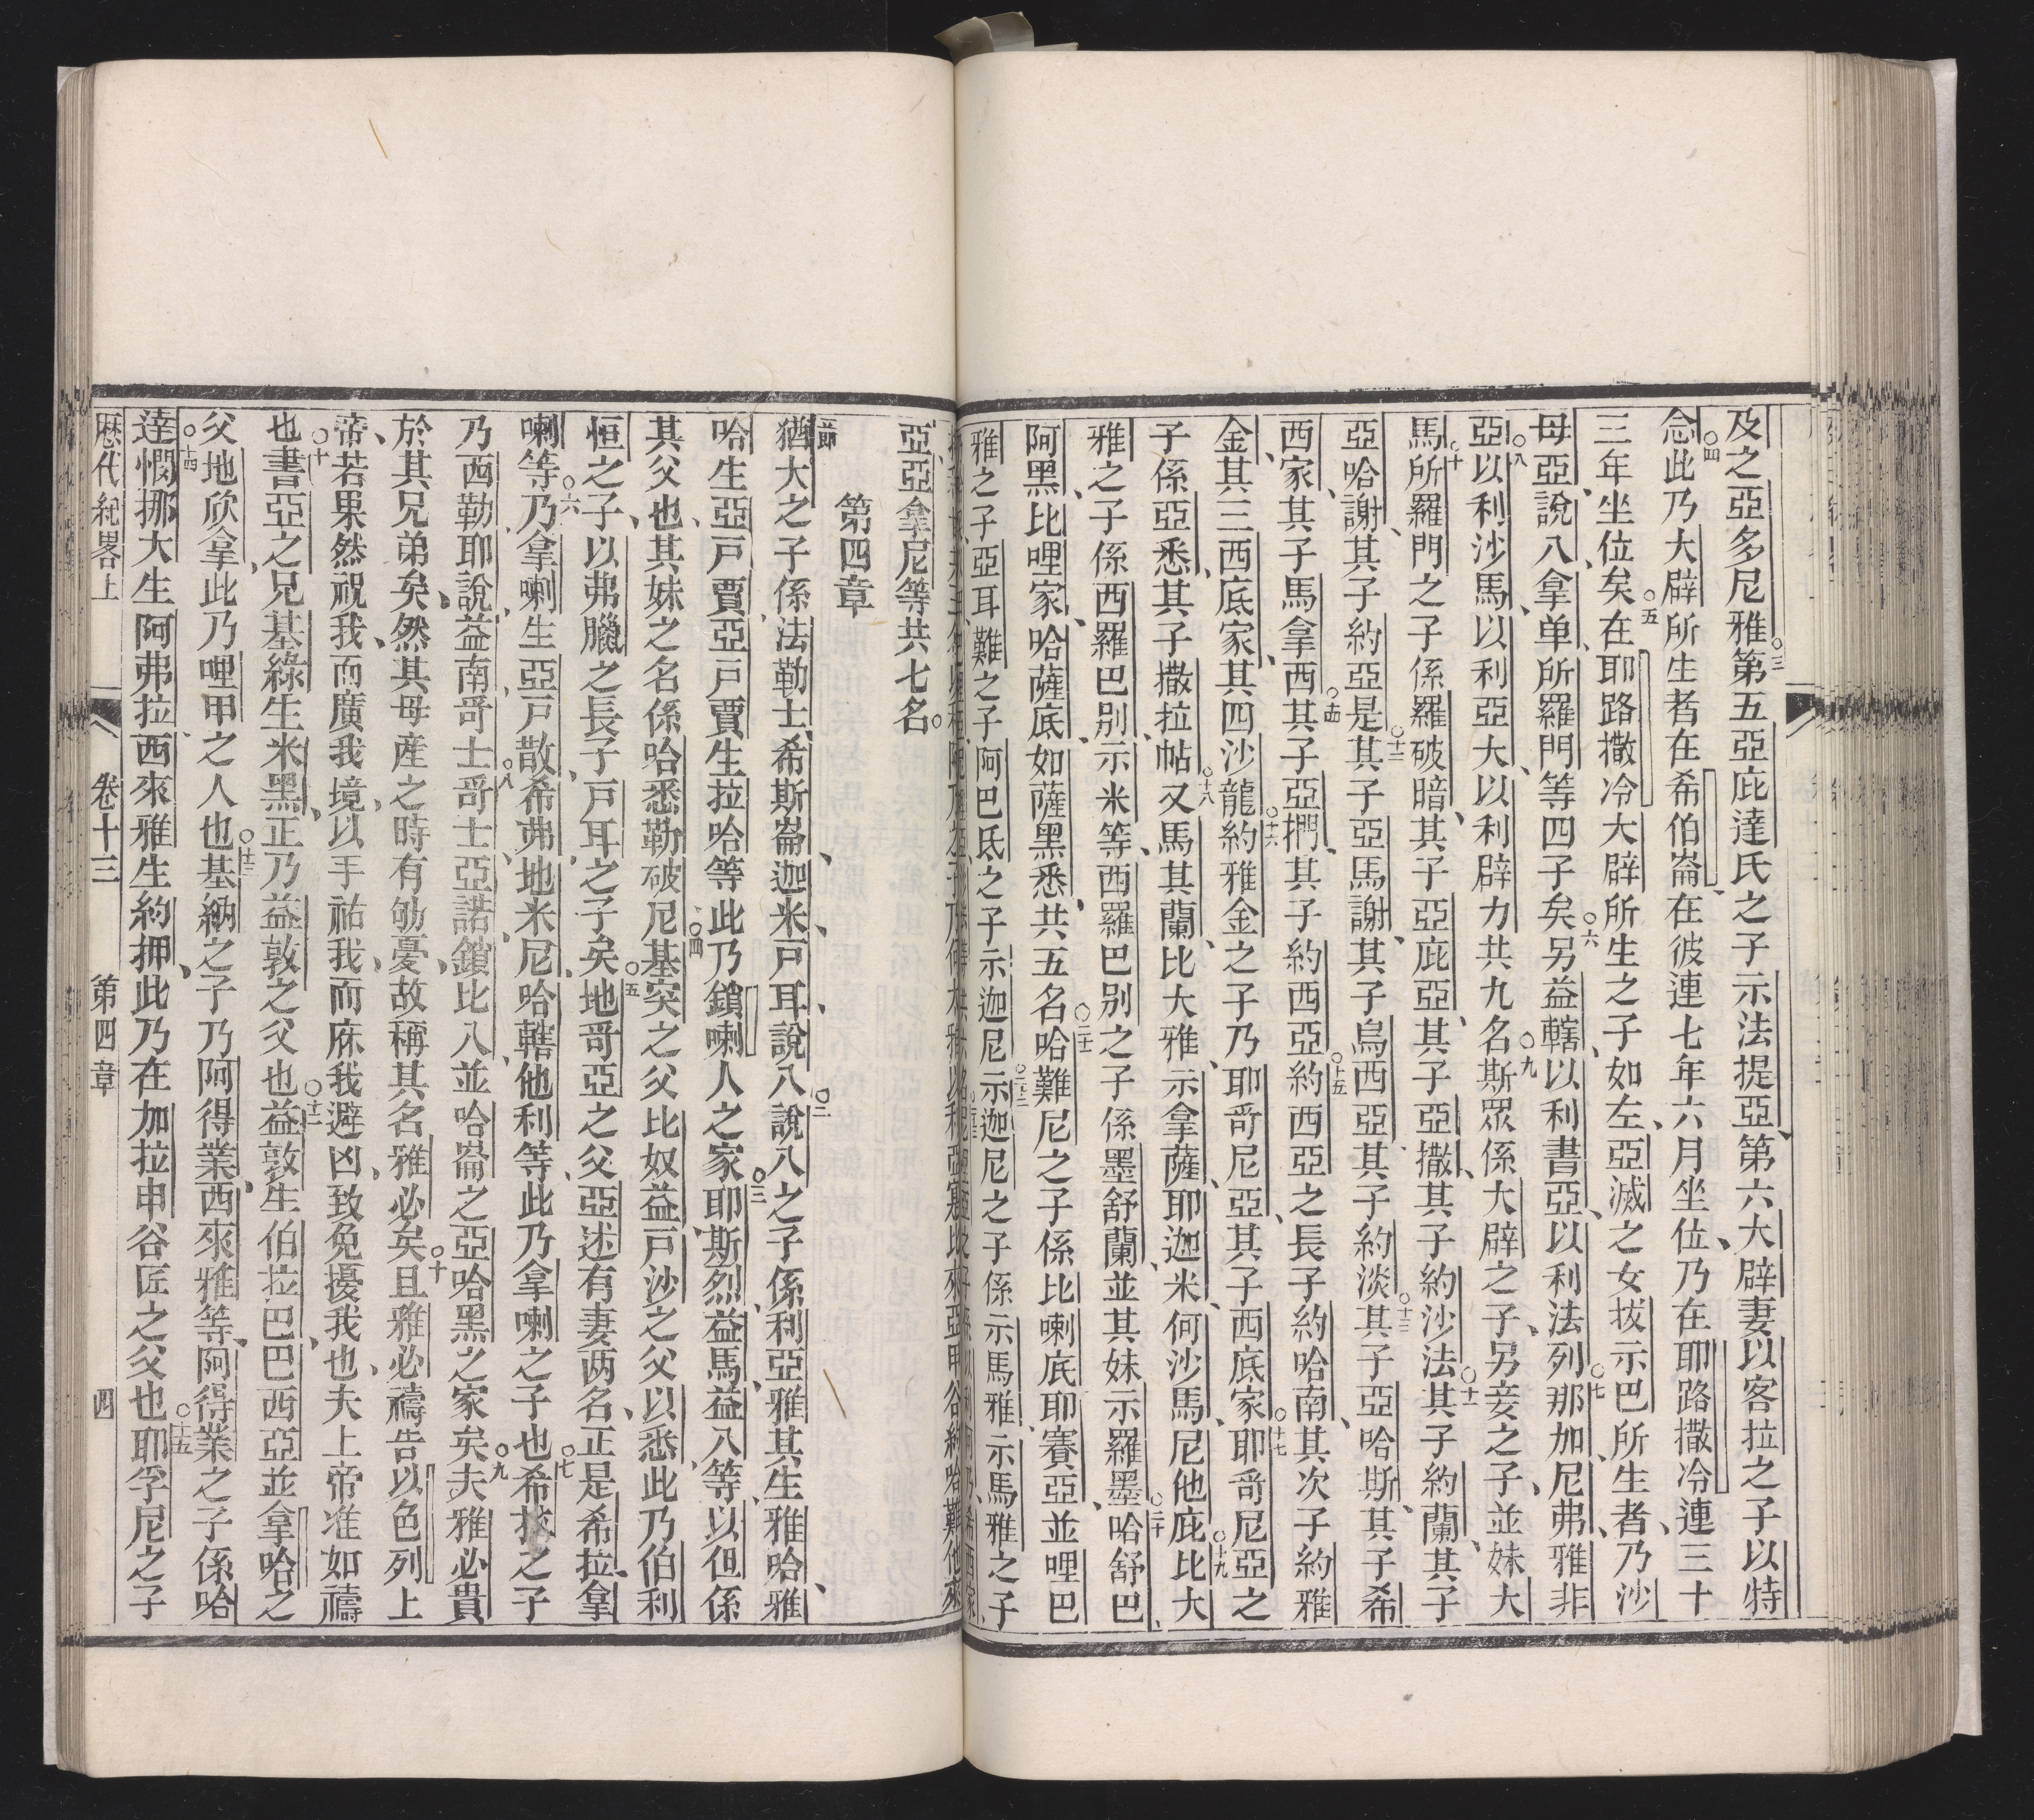 及之亞多尼雅第五亞庇達氏之子示法提亞第六大辟妻以客拉之子以特
念此乃大辟所生者在希伯崙在彼連七年六月坐位乃在耶路撒冷連三十
三年坐位矣在耶路撒冷大辟所生之子如左亞滅之女拔示巴所生者乃沙
母亞說八拿单所羅門等四子矣另益轄以利書亞以利法列那加尼弗雅非
亞以利沙馬以利亞大以利辟力共九名斯眾係大辟之子另妾之子並妹大
馬所羅門之子係羅破暗其子亞庇亞其子亞撒其子約沙法其子約蘭其子
亞哈謝其子約亞是其子亞馬謝其子烏西亞其子約淡其子亞哈斯其子希
西家其子馬拿西其子亞捫其子約西亞約西亞之長子約哈南其次子約雅
金其三西底家其四沙龍約雅金之子乃耶哥尼亞其子西底家耶哥尼亞之
子係亞悉其子撒拉帖又馬其蘭比大雅示拿薩耶迦米何沙馬尼他庇比大
雅之子係西羅巴别示米等西羅巴别之子係墨舒蘭並其妹示羅墨哈舒巴
阿黑比哩家哈薩底如薩黑悉共五名哈難尼之子係比喇底耶賽亞並哩巴
雅之子亞耳難之子阿巴底之子示迦尼示迦尼之子係示馬雅示馬雅之子
亞亞拿尼等共七名
第四章
節
猶大之子係法勒士希斯崙迦米戸耳說八說八之子係利亞雅其生雅哈雅
哈生亞戸賈亞戸賈生拉哈等此乃鎖喇人之家耶斯烈益馬益八等以但係
其父也其妹之名係哈悉勒破尼基突之父比奴益戸沙之父以悉此乃伯利
恒之子以弗臘之長子戸耳之子矣地哥亞之父亞述有妻两名正是希拉拿
喇等乃拿喇生亞戸散希弗地米尼哈轄他利等此乃拿喇之子也希拉之子
乃西勒耶說益南哥士哥士亞諾鎖比八並哈崙之亞哈黑之家矣夫雅必貴
於其兄弟矣然其母産之時有劬憂故稱其名雅必矣且雅必禱告以色列上
帝若果然祝我而廣我境以手祐我而庥我避凶致免擾我也夫上帝准如禱
也書亞之兄基綠生米黑正乃益敦之父也益敦生伯拉巴巴西亞並拿哈之
父地欣拿此乃哩甲之人也基納之子乃阿得業西來雅等阿得業之子係哈
達憫挪大生阿弗拉西來雅生約押此乃在加拉申谷匠之父也耶孚尼之子
歷代紀畧上 卷十三 第四章 四